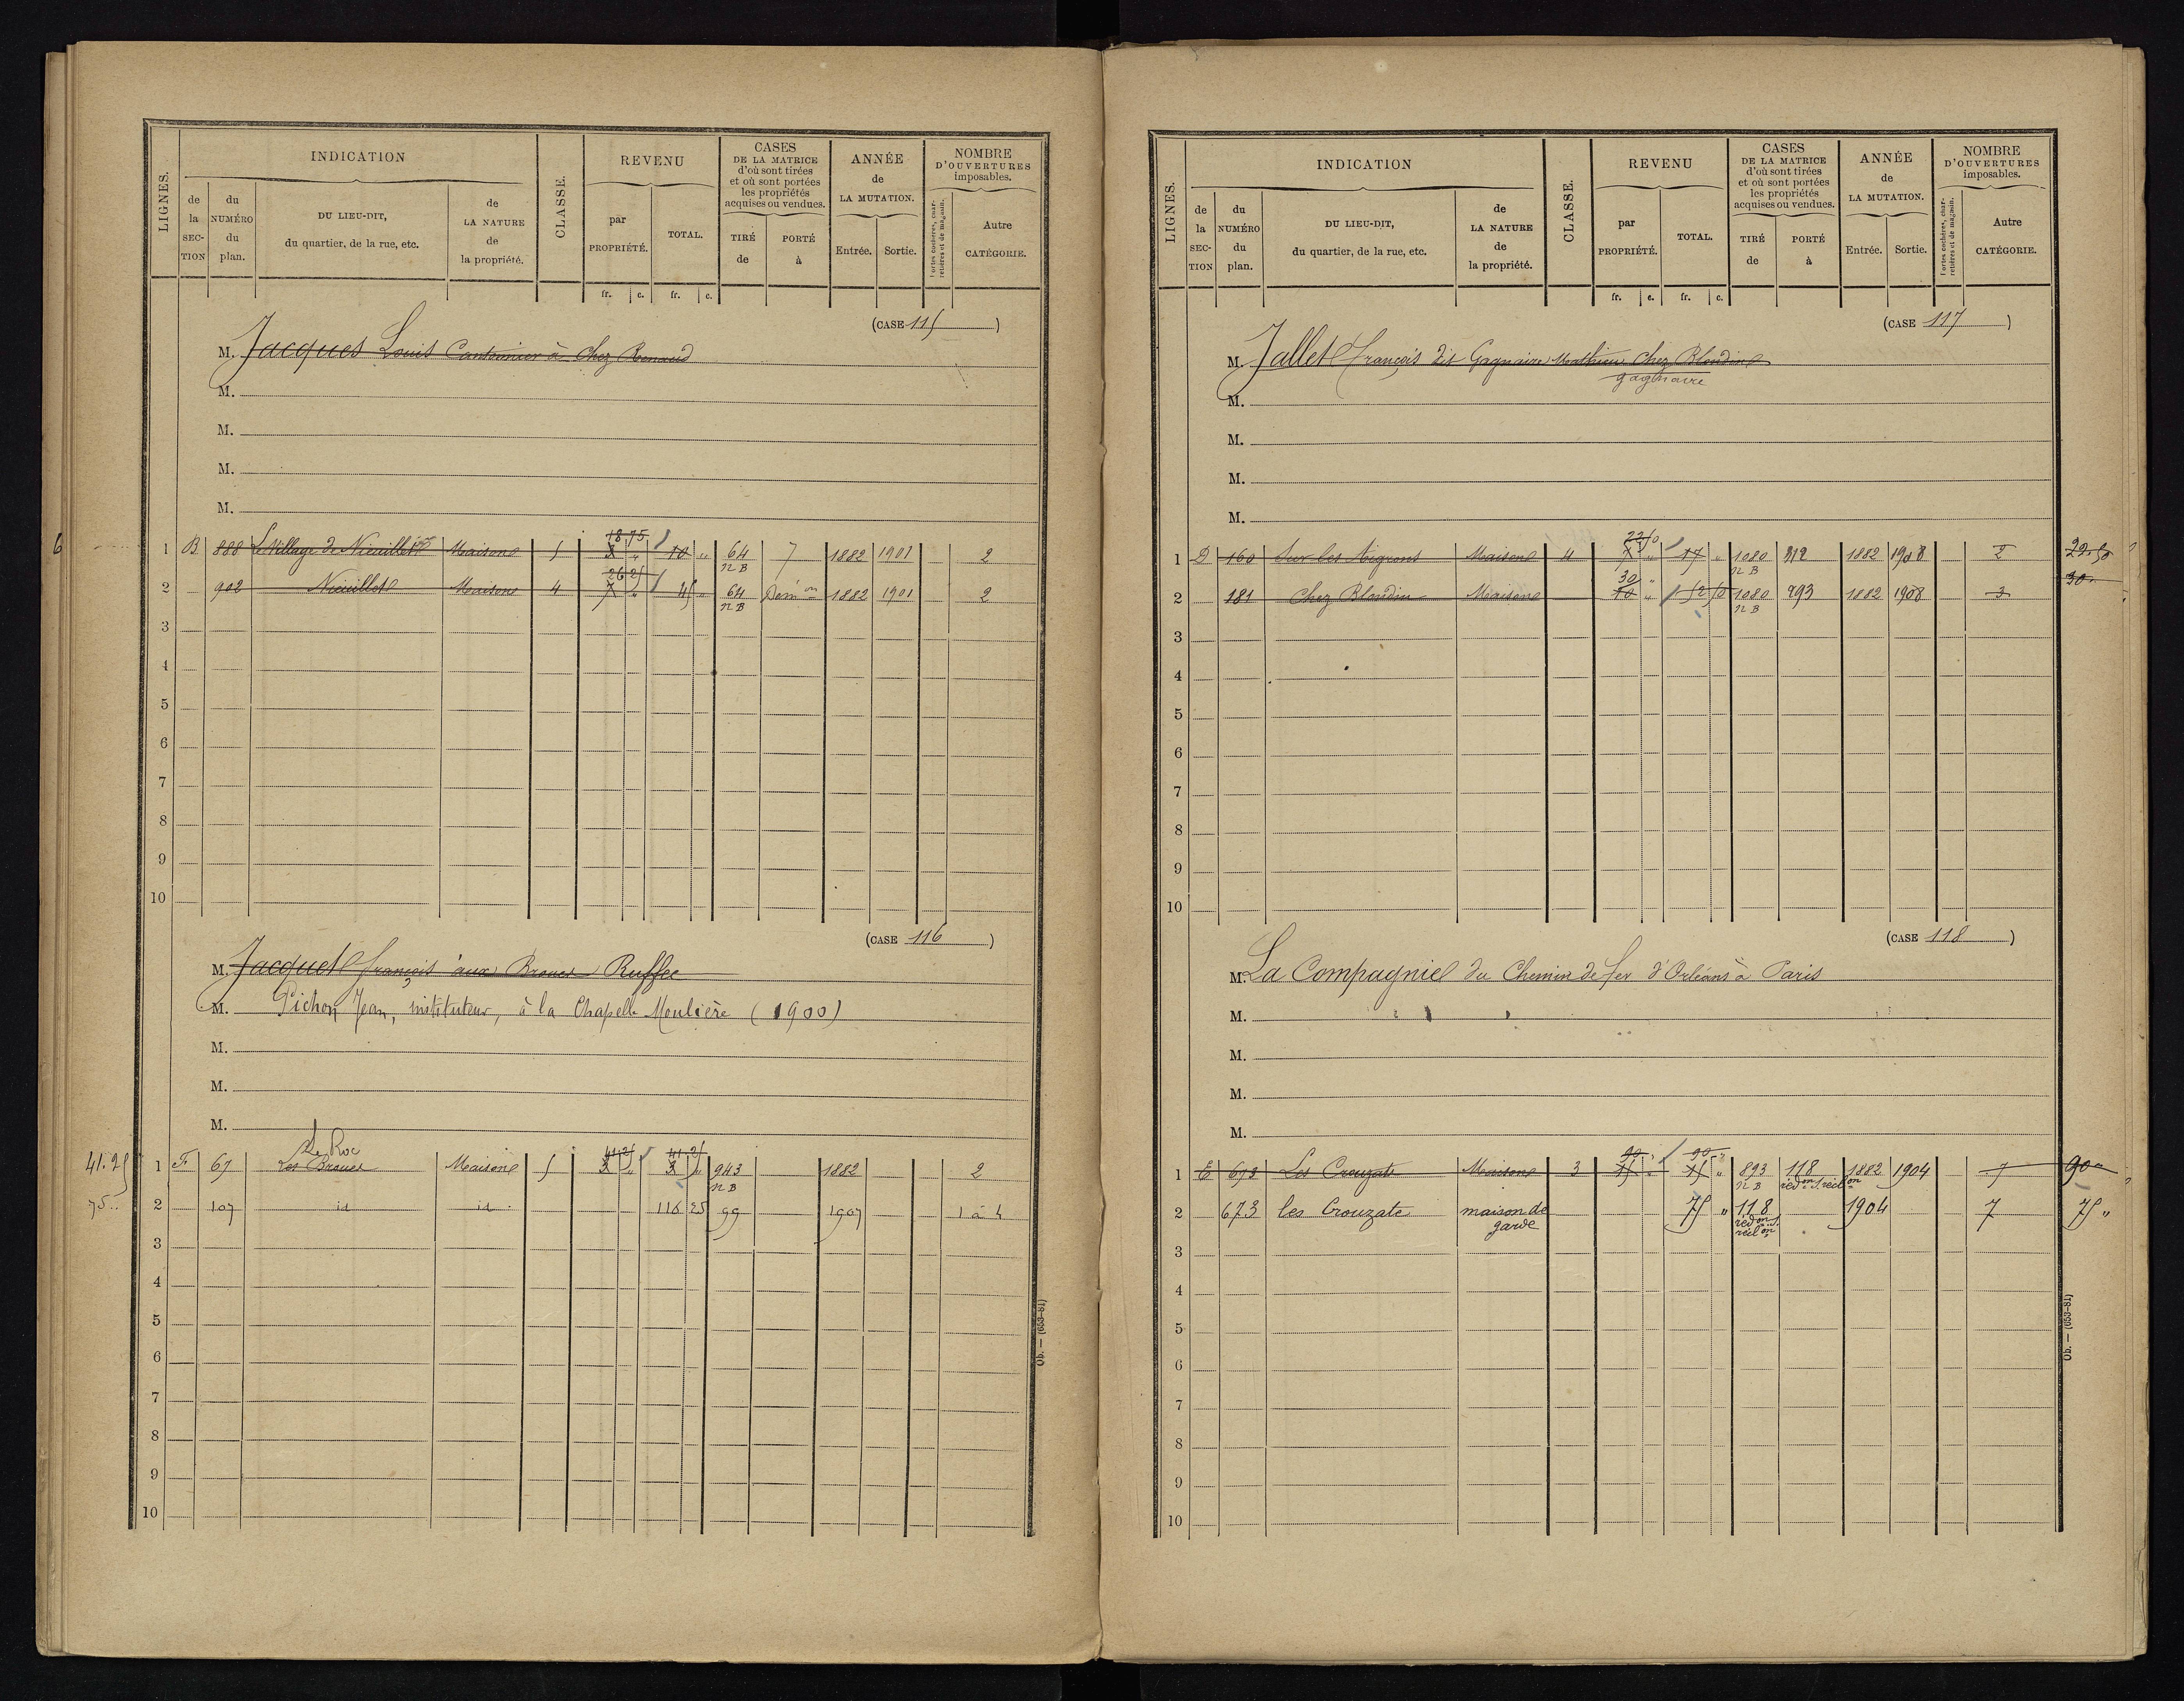 LIGNES.
INDICATION
de la SECTION
du NUMÉRO du plan.
DU LIEU-DIT, du quartier, de la rue, etc.
de LA NATURE de la propriété.
CLASSE.
REVENU
par PROPRIÉTÉ.
TOTAL.
CASES DE LA MATRICE d'où sont tirées et où sont portées les propriétés acquises ou vendues.
TIRÉ de
PORTÉ à
ANNÉE de LA MUTATION.
Entrée.
Sortie.
NOMBRE D'OUVERTURES imposables.
Portes cochères, charretières et de magasin.
Autre CATÉGORIE.
fr. c. fr. c.
(CASE 115)
M. Jacques Louis Cantonnier à Chez Renaud
M.
M.
M.
M.
6
18 75
1 B 888 Le Village de Nieuillet Maison 5 " 10 " 64 7 1882 1901 2
n B
26 25
2 902 Nieuillet Maison 4 7 " 45 " 64 Dém on 1882 1901 2
n B
3
4
5
6
7
8
9
10
(CASE 116)
M. Jacquet françois aux Broues Ruffec
M. Pichon Jean, instituteur, à la Chapelle Moulière (1900)
M.
M.
M.
Le Roc
41 25 41 25
41.25 1 F 67 Les Broues Maison 5 " " 943 1882 2
n B
75 .. 2 107 id id 116 25 99 1907 1 à 4
3
4
5
6
7
8
9
10
Ob. — (653-81)
LIGNES.
INDICATION
de la SECTION
du NUMÉRO du plan.
DU LIEU-DIT, du quartier, de la rue, etc.
de LA NATURE de la propriété.
CLASSE.
REVENU
par PROPRIÉTÉ.
TOTAL.
CASES DE LA MATRICE d'où sont tirées et où sont portées les propriétés acquises ou vendues.
TIRÉ de
PORTÉ à
ANNÉE de LA MUTATION.
Entrée.
Sortie.
NOMBRE D'OUVERTURES imposables.
Portes cochères, charretières et de magasin.
Autre CATÉGORIE.
fr. c. fr. c.
(CASE 117)
M. Jallet François dit Gagnaire Mathieu Chez Blondin
gagnaire
M.
M.
M.
M.
22 50
1 D 160 Sur les Aigrons Maison 4 7 " 17 " 1080 312 1882 1908 2 22.50
n B
30 " 30 "
2 181 Chez Blondin Maison 10 " 52 50 1080 793 1882 1908 3
n B
3
4
5
6
7
8
9
10
(CASE 118)
M. La Compagnie du Chemin de fer d'Orléans à Paris
M.
M.
M.
M.
90 " 90 "
1 E 673 Les Crouzate Maison 3 15 " 15 " 893 118 1882 1904 7 90 "
n B réd on s. récl on
2 673 les Crouzate maison de garde 75 " 118 1904 7 75 "
réd on s. récl on
3
4
5
6
7
8
9
10
Ob. — (653-81)